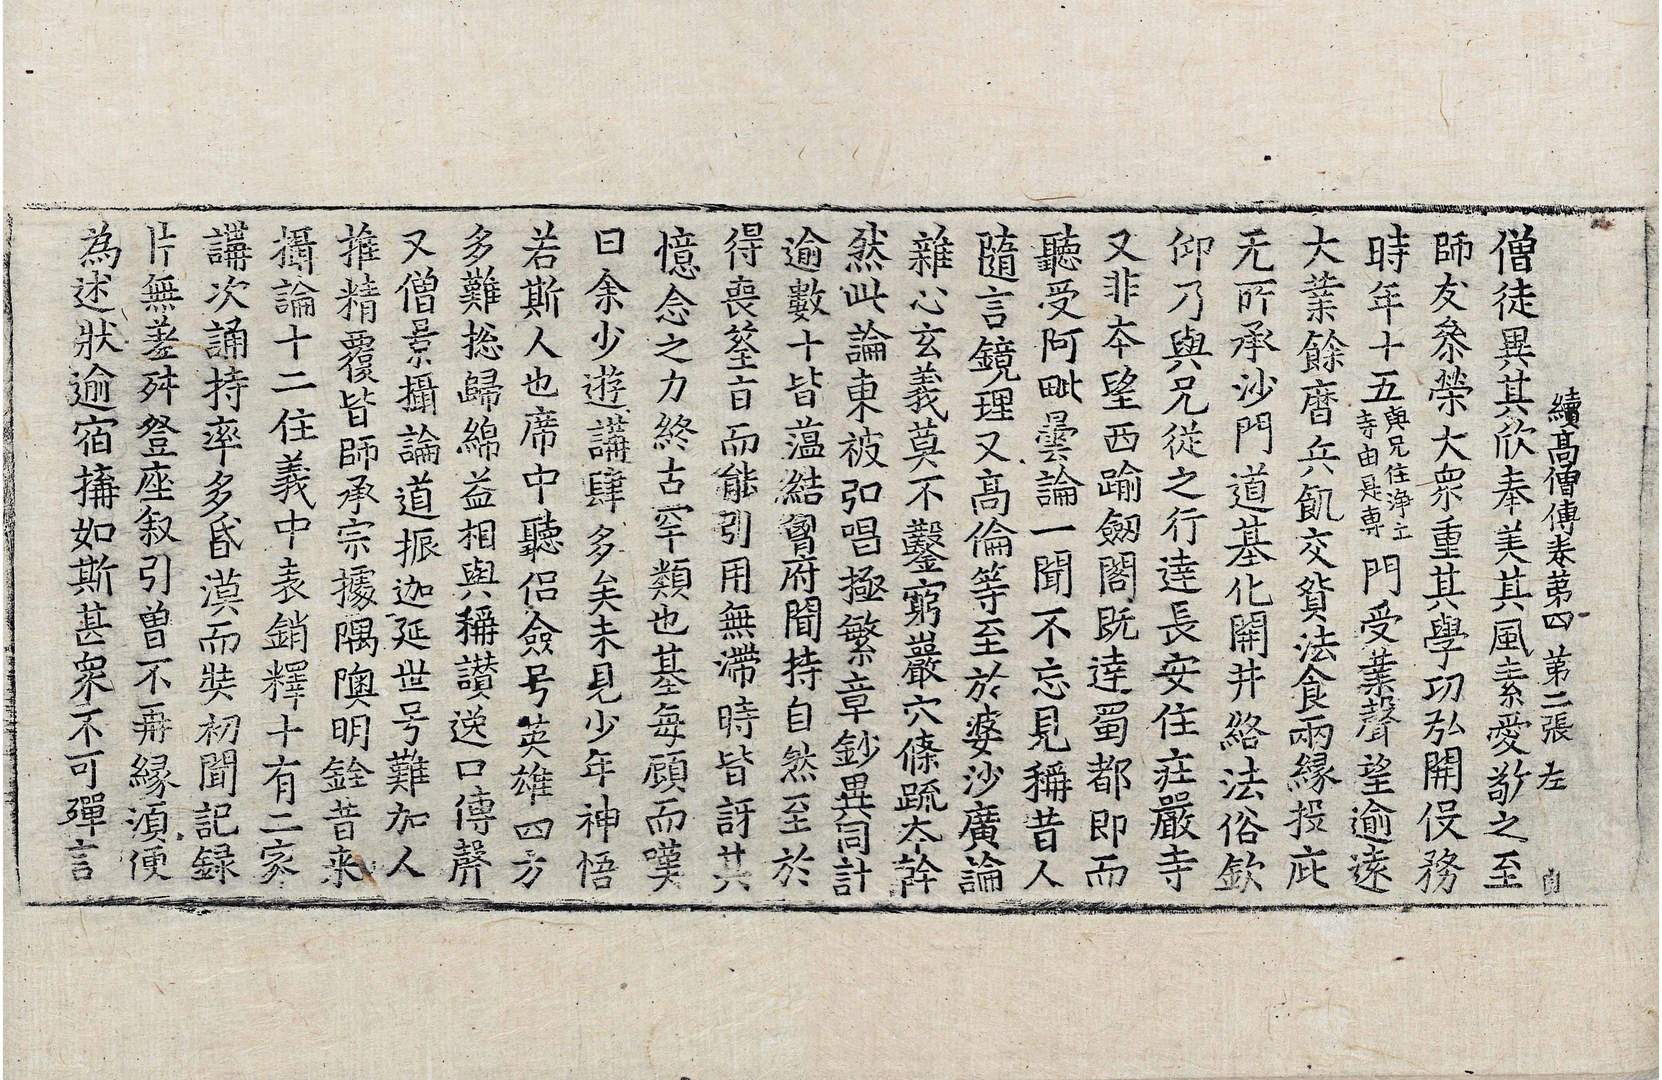 續高僧傳卷第四 第二張 左
僧徒異其欣奉美其風素愛敬之至
師友參榮大衆重其學功弘開役務
時年十五與兄住淨土寺由是專門受業聲望逾遠
大業餘曆兵飢交貿法食兩緣投庇
无所承沙門道基化開井絡法俗欽
仰乃與兄從之行達長安住莊嚴寺
又非本望西踰劒閣既達蜀都即而
聽受阿毗曇論一聞不忘見稱昔人
隨言鏡理又高倫等至於婆沙廣論
雜心玄義莫不鑿窮巖穴條疏本幹
然此論東被弘唱極繁章鈔異同計
逾數十皆蘊結胷府聞持自然至於
得喪筌旨而能引用無滯時皆訝其
憶念之力終古罕類也基每顧而嘆
曰余少遊講肆多矣未見少年神悟
若斯人也席中聽侶僉号英雄四方
多難捴歸綿益相與稱讃逸口傳聲
又僧景攝論道振迦延世号難加人
推精覆皆師承宗據隅隩明銓昔来
攝論十二住義中表銷釋十有二家
講次誦持率多昏漠而奘初聞記録
片無差舛登座叙引曽不再緣須便
為述狀逾宿搆如斯甚衆不可殫言